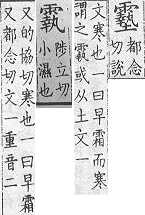 都念
切說
文寒也一曰早霜而寒
謂之或从土文一
陟立切
小濕也
又的協切寒也一曰早霜
又都念切文一重音二